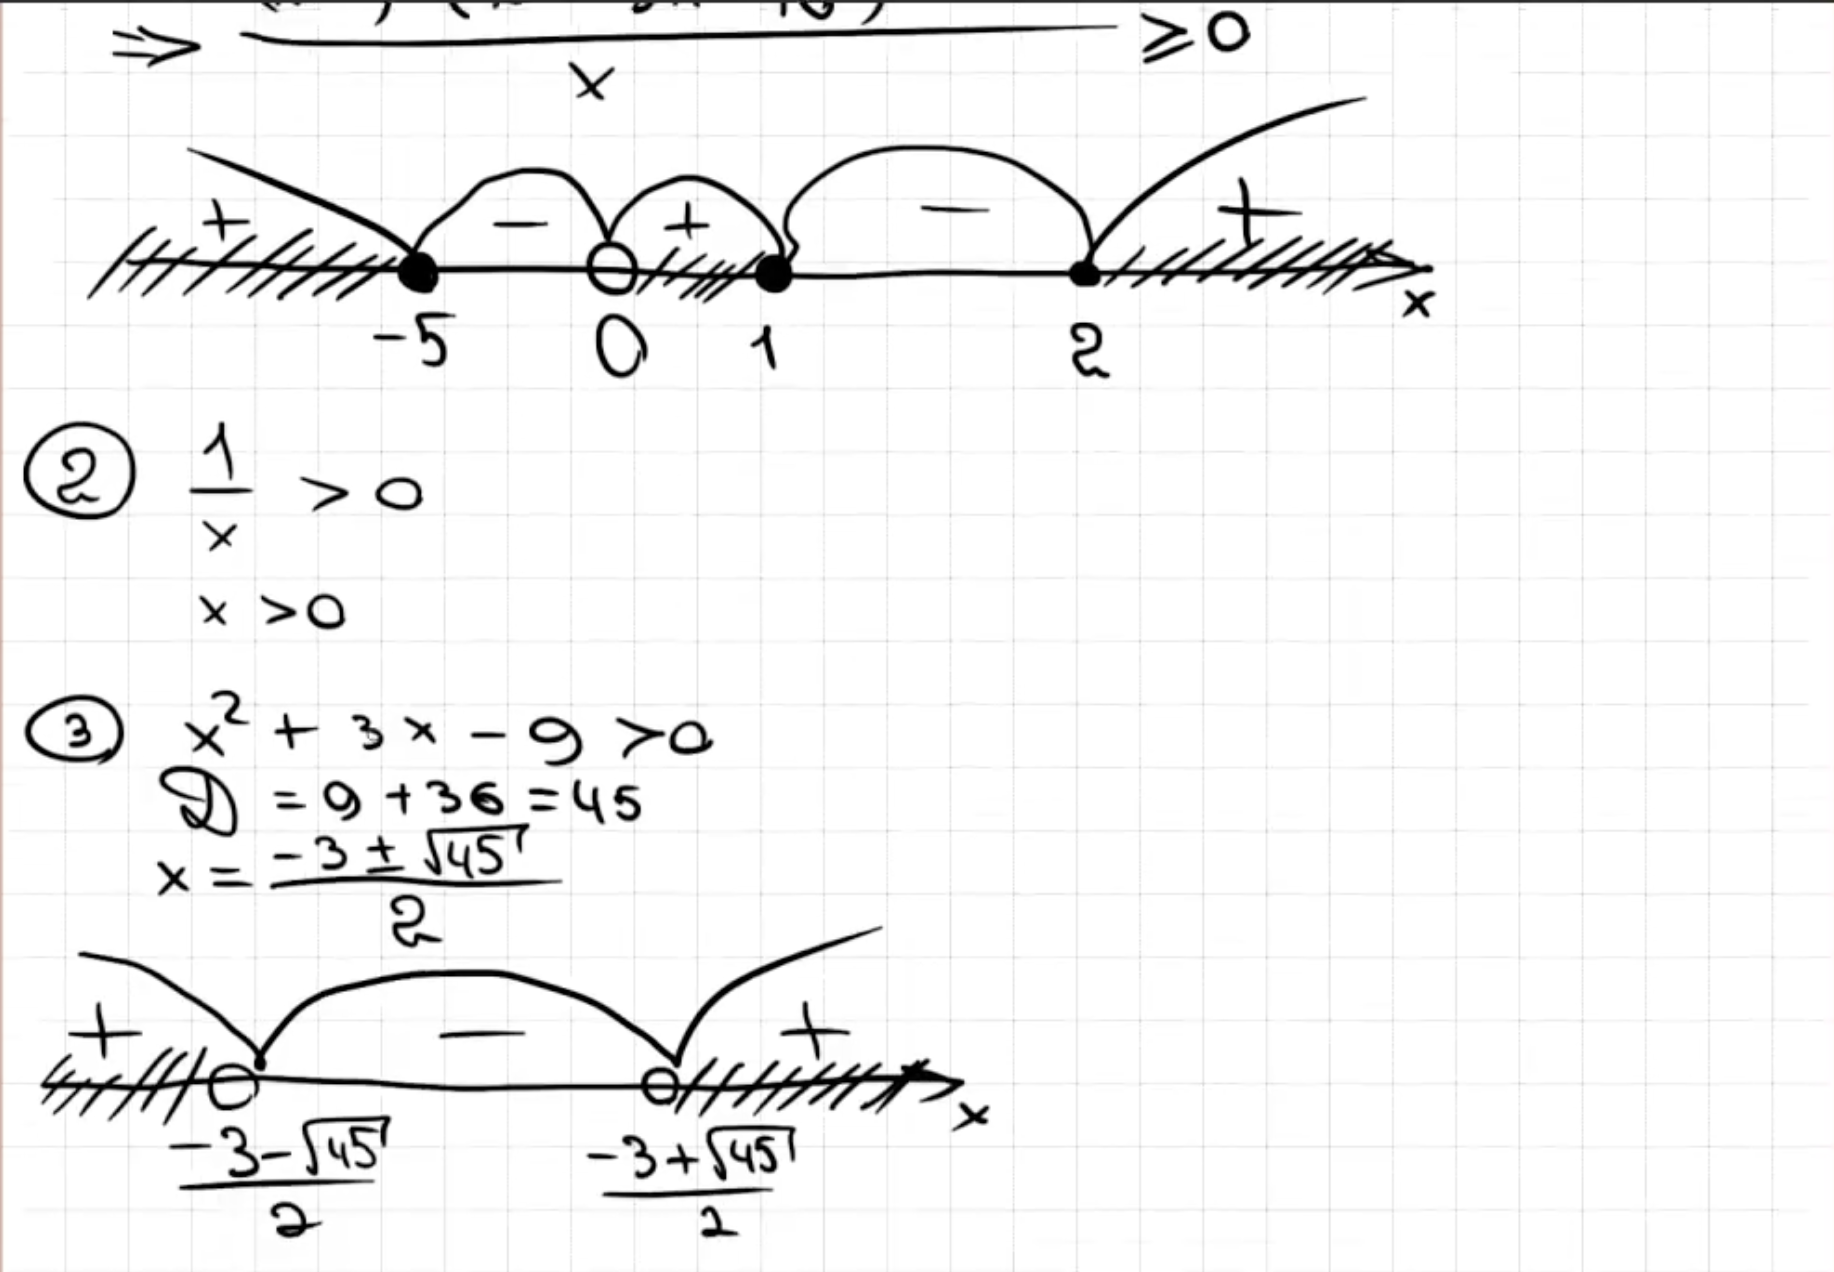 ⇒ ≥ 0
x
+ − + − +
-5 0 1 2 x
② 1/x > 0
x > 0
③ x² + 3x − 9 > 0
D = 9 + 36 = 45
x = (−3 ± √45)/2
+ − +
x
(−3−√45)/2 (−3+√45)/2